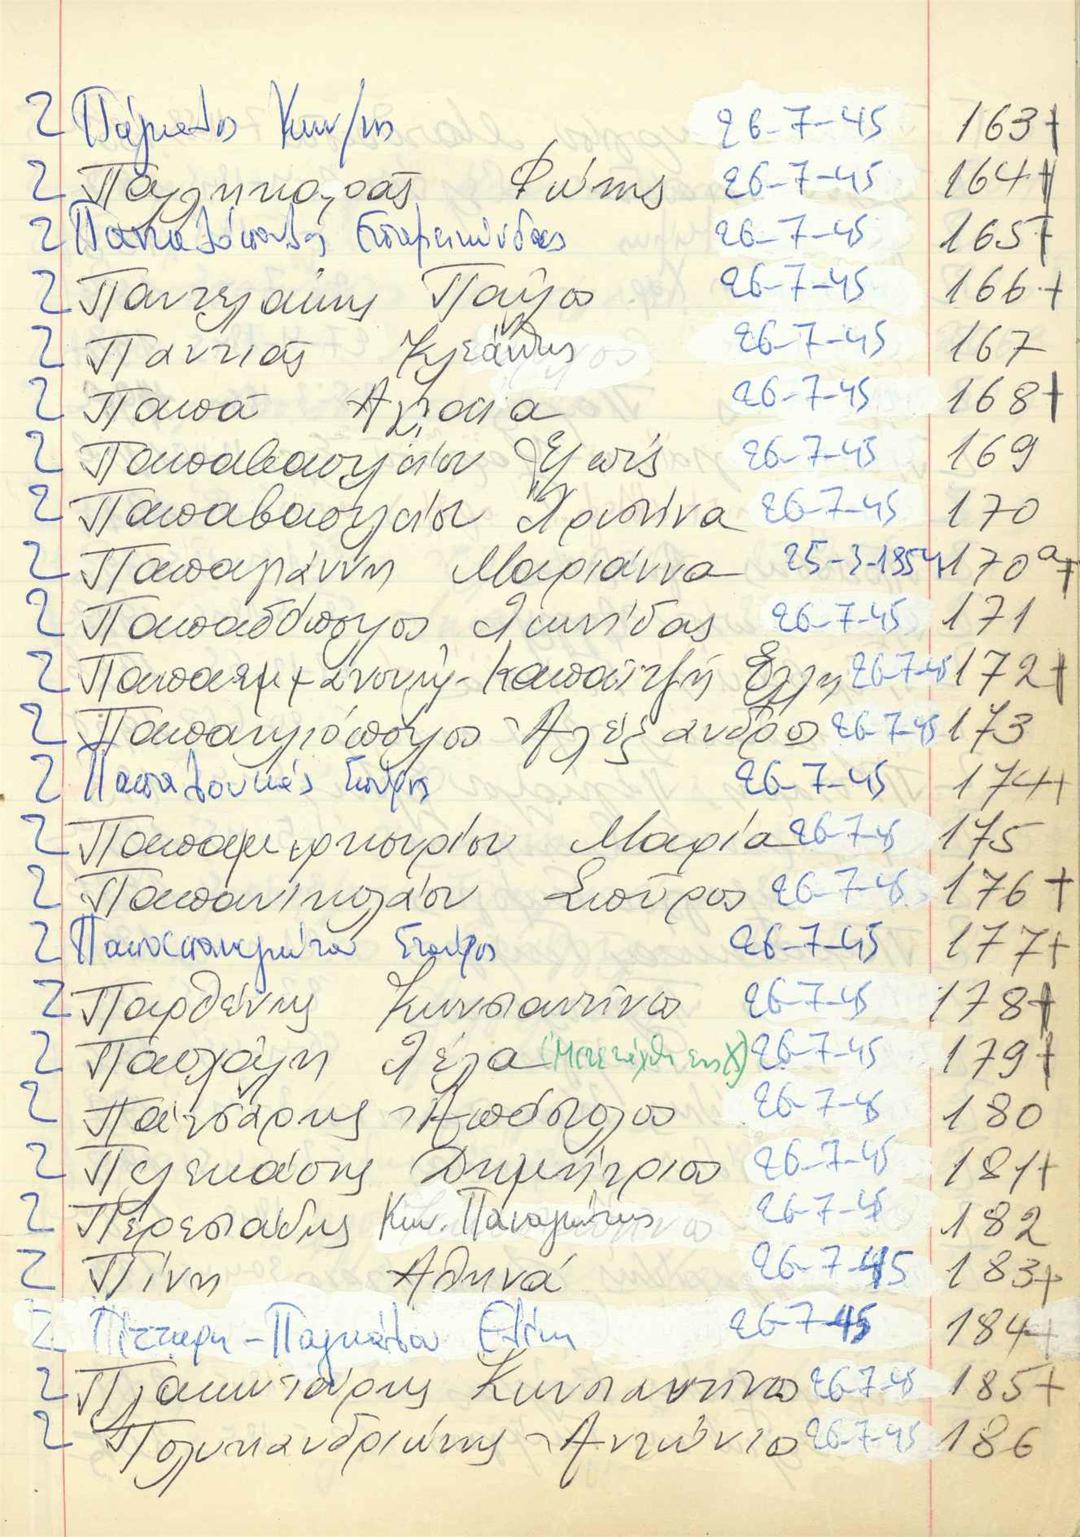 2 Πάγκαλος Κων/νος 26-7-45 163+
2 Παλληκαράς Φώτης 26-7-45 164+
2 Παπαλόπουλος Επαμεινώνδας 26-7-45 165+
2 Παντελάκης Παύλος 26-7-45 166+
2 Παντιάς Κλεάνθης 26-7-45 167
2 Παπά Αγλαΐα 26-7-45 168+
2 Παπαβασιλείου Ελπίς 26-7-45 169
2 Παπαβασιλείου Χριστίνα 26-7-45 170
2 Παπαγιάννη Μαριάννα 25-3-1954 170α+
2 Παπαδόπουλος Λεωνίδας 26-7-45 171
2 Καπαϊτζή Έλλη 26-7-45 172+
2 Παπαηλιόπουλος Αλέξανδρος 26-7-45 173
2 Παπαλουκάς Σπύρος 26-7-45 174+
2 Μαρία 26-7-45 175
2 Παπανικολάου Σπύρος 26-7-45 176+
2 Παπαπαναγιώτου Σταύρος 26-7-45 177+
2 Παρθένης Κωνσταντίνος 26-7-45 178+
2 Πασχάλη Λέλα (Μετετάχθη εις Χ) 26-7-45 179+
2 Πατσάρης Απόστολος 26-7-45 180
2 Πελεκάσης Δημήτριος 26-7-45 181+
2 Περεσιάδης Κων. Παναγιώτης 26-7-45 182
2 Πίνη Αθηνά 26-7-45 183+
2 Πίτταρη-Παγκάλου Ελένη 26-7-45 184+
2 Πλακωτάρης Κωνσταντίνος 26-7-45 185+
2 Πολυκανδριώτης Αντώνιος 26-7-45 186